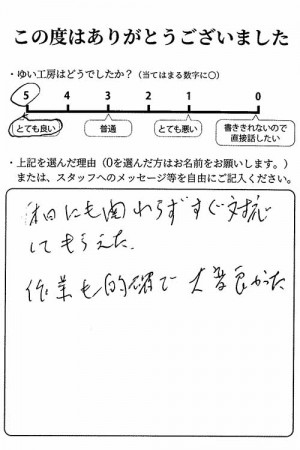 この度はありがとうございました
・ゆい工房はどうでしたか？（当てはまる数字に○）
5 4 3 2 1 0
とても良い 普通 とても悪い 書ききれないので直接話したい
・上記を選んだ理由（0を選んだ方はお名前をお願いします。）
または、スタッフへのメッセージ等を自由にご記入ください。
休日にも関わらずすぐ対応
してもらえた。
作業も的確で大変良かった